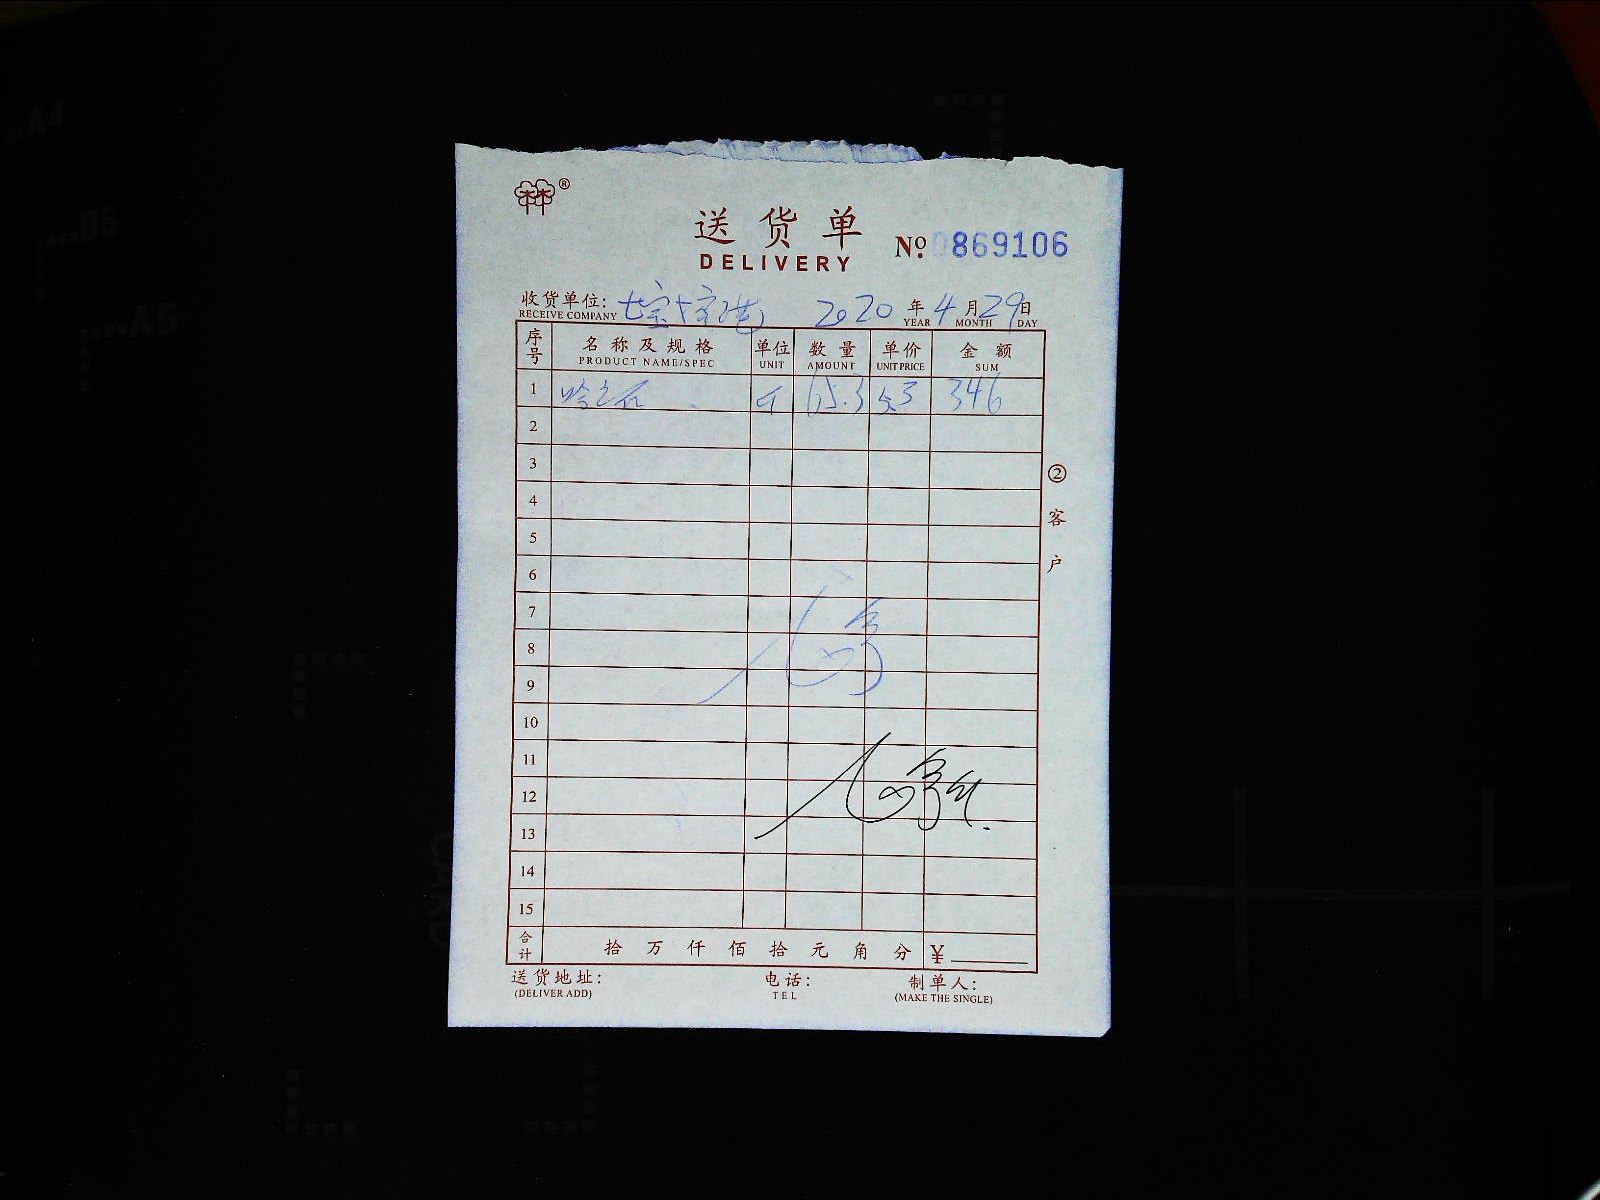 ®
送货单
DELIVERY
№ 0869106
收货单位: 2020 年 4 月 29 日
RECEIVE COMPANY YEAR MONTH DAY
序号 名称及规格 单位 数量 单价 金额
PRODUCT NAME/SPEC UNIT AMOUNT UNIT PRICE SUM
1 斤 65.3 5.3 346
2
3
4
5
6
7
8
9
10
11
12
13
14
15
② 客户
合计 拾 万 仟 佰 拾 元 角 分 ¥
送货地址: 电话: 制单人:
(DELIVER ADD) TEL (MAKE THE SINGLE)
A4
B5
A5
CARD